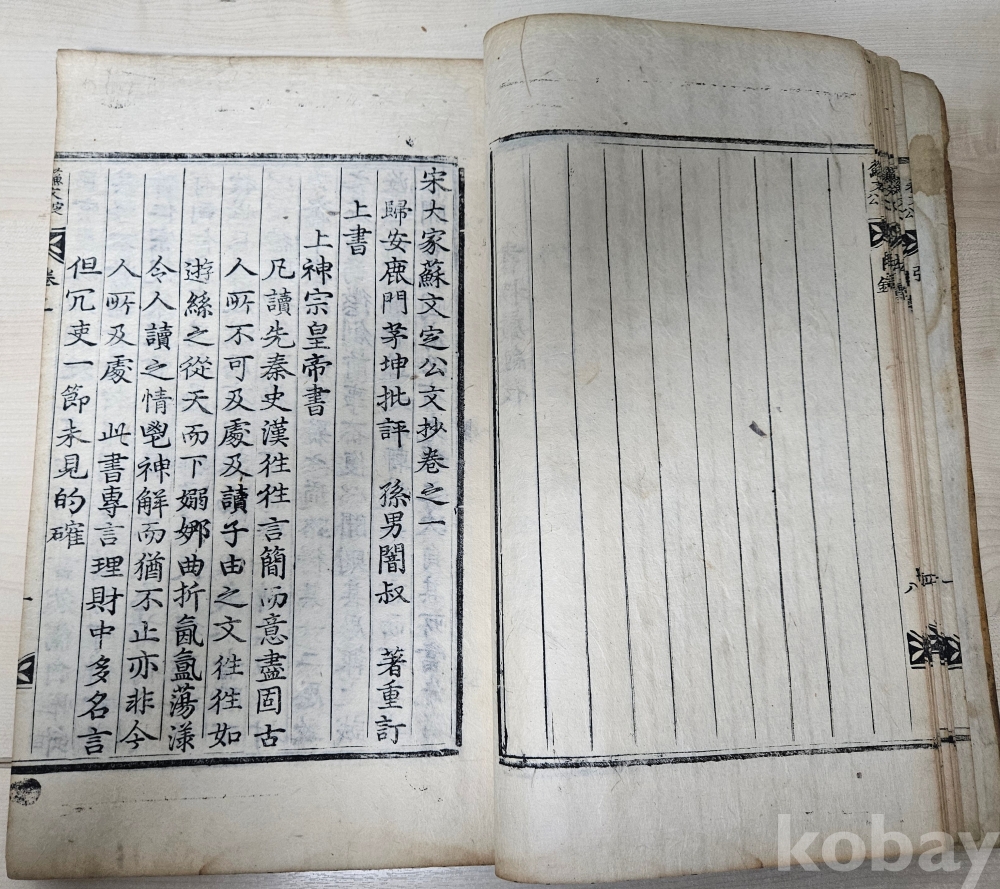 宋大家蘇文定公文抄卷之一
歸安鹿門茅坤批評 孫男闇叔 著重訂
上書
上神宗皇帝書
凡讀先秦史漢徃徃言簡而意盡固古
人所不可及處及讀子由之文徃徃如
遊絲之從天而下嫋娜曲折氤氳蕩漾
令人讀之情鬯神解而猶不止亦非今
人所及處 此書專言理財中多名言
但冗吏一節未見的確
蘇文定
卷一
一
kobay